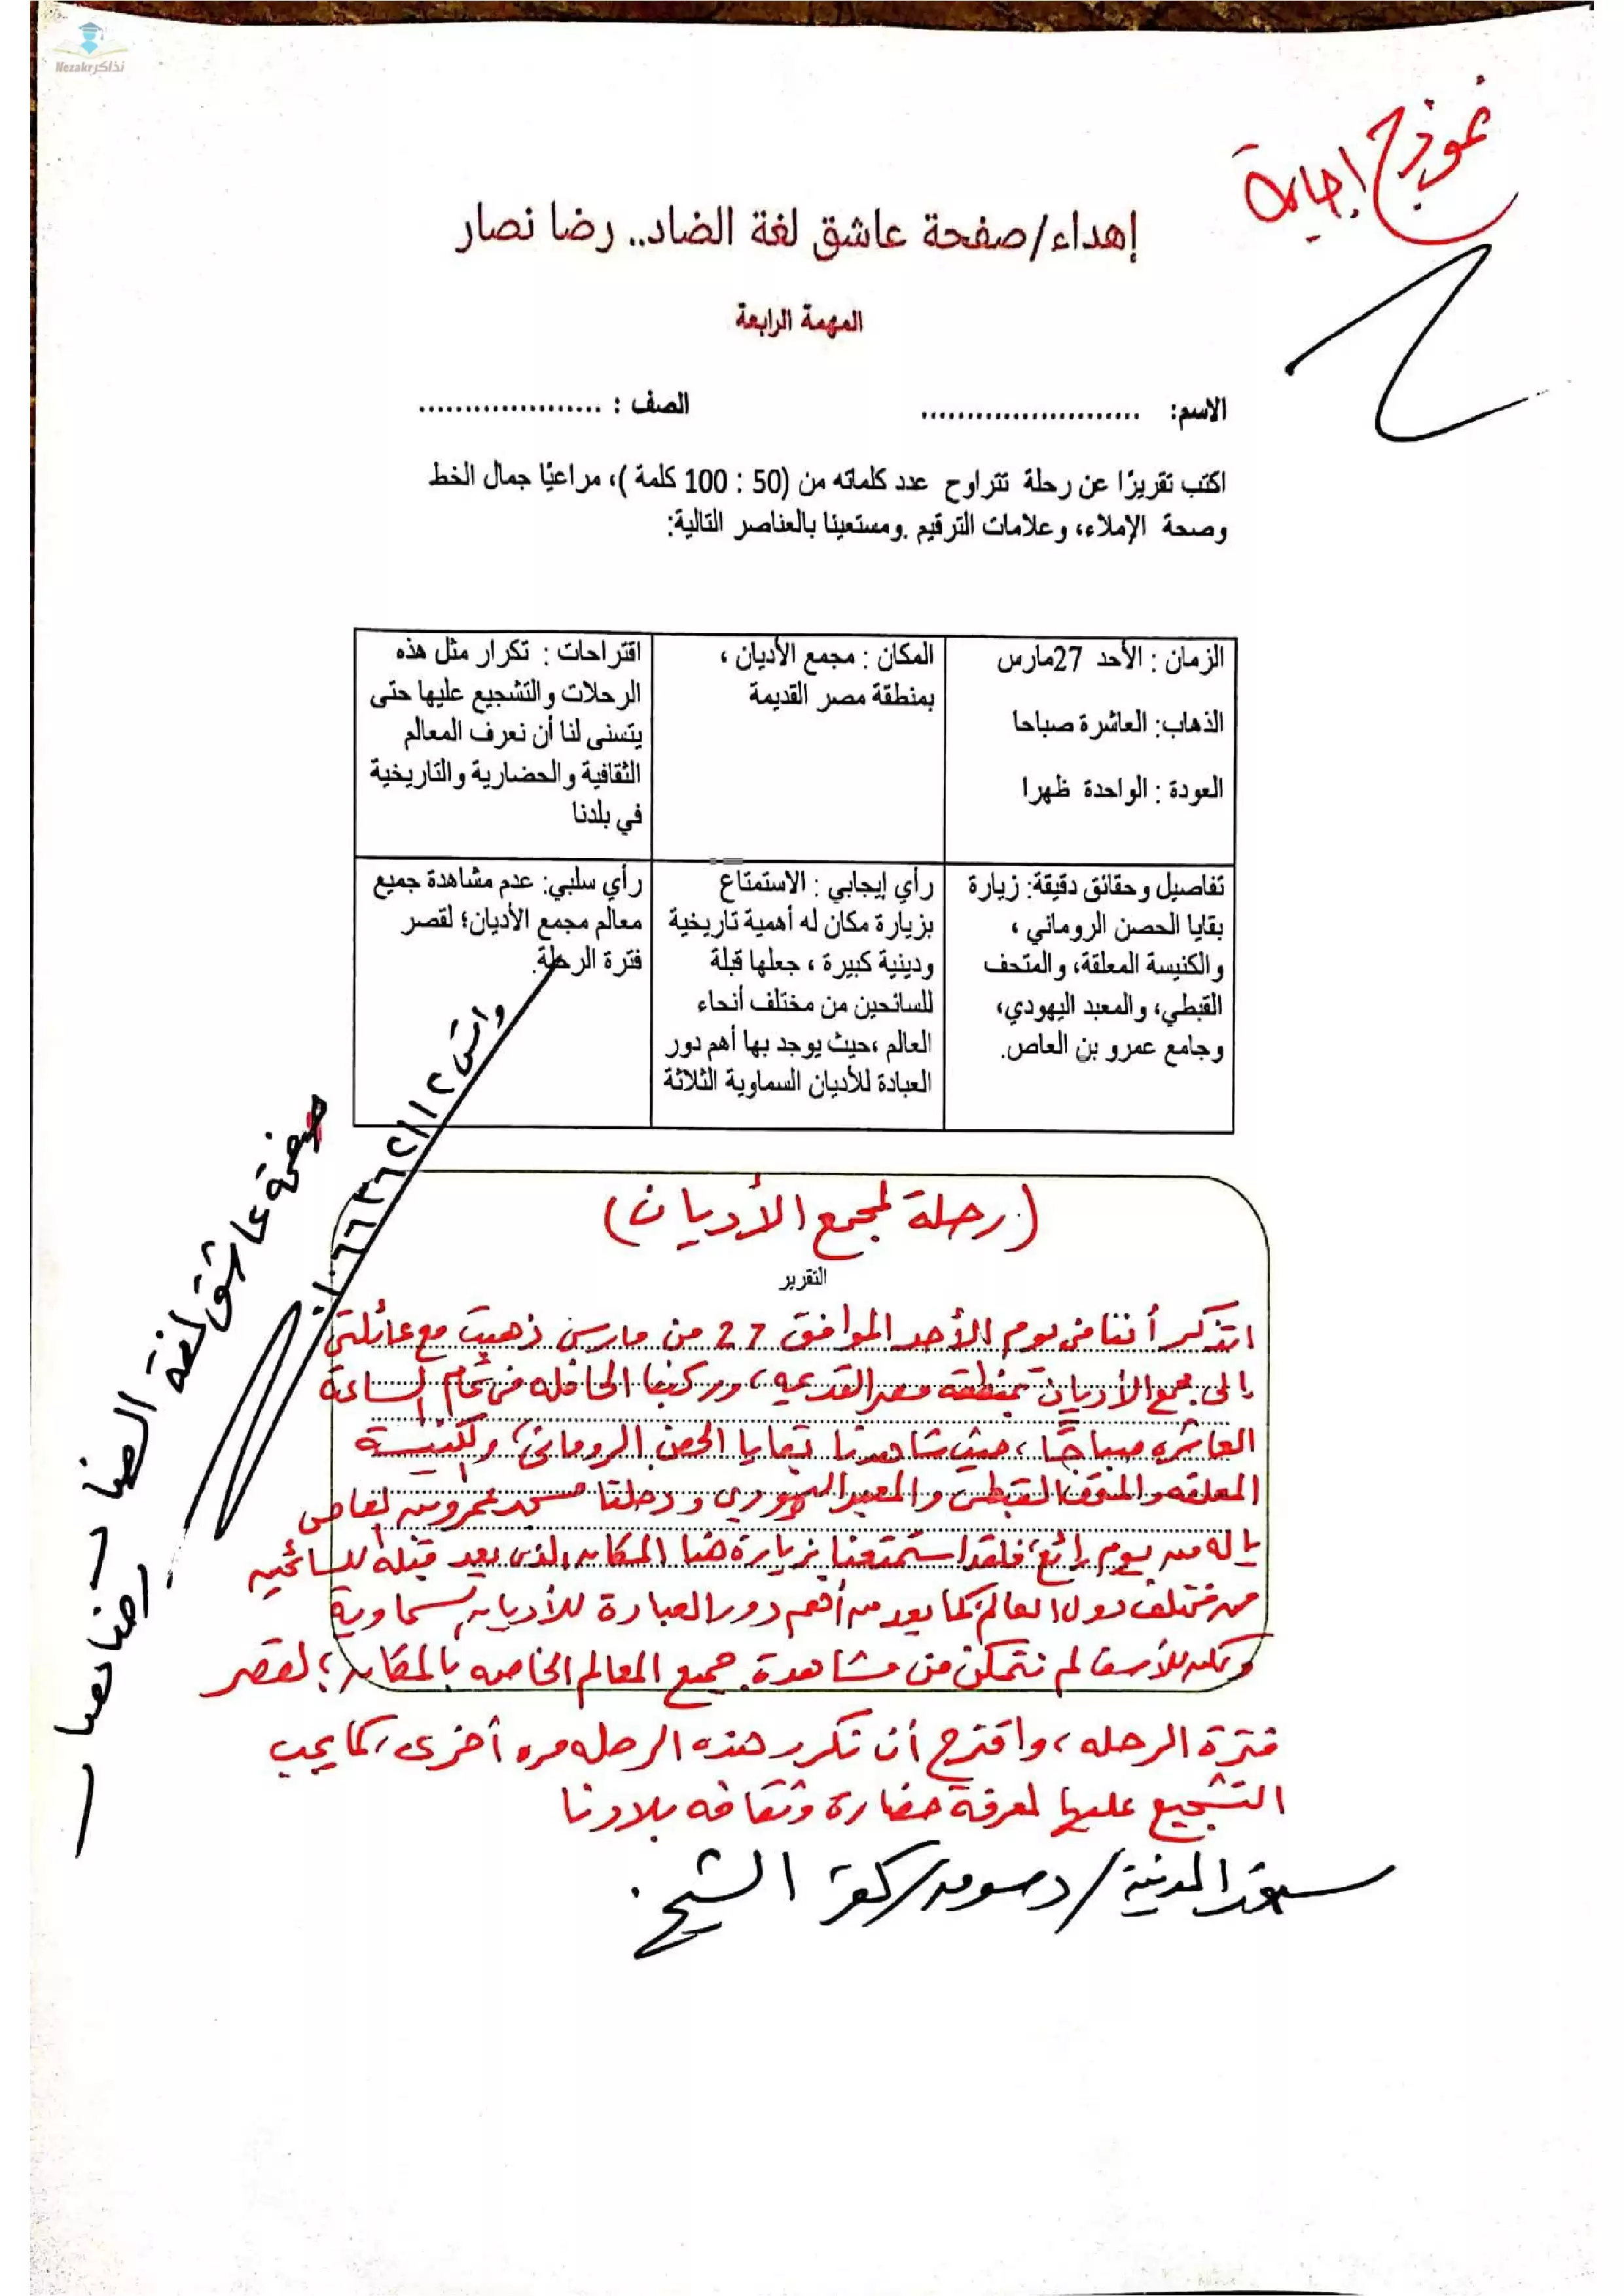 نذاكر Nezakr
نموذج إجابة
إهداء/صفحة عاشق لغة الضاد.. رضا نصار
المهمة الرابعة
الاسم: ........................ الصف : ....................
اكتب تقريرًا عن رحلة تتراوح عدد كلماته من (50 : 100 كلمة )، مراعيًا جمال الخط
وصحة الإملاء، وعلامات الترقيم .ومستعينا بالعناصر التالية:
الزمان : الأحد 27مارس
الذهاب: العاشرة صباحا
العودة : الواحدة ظهرا
المكان : مجمع الأديان ،
بمنطقة مصر القديمة
اقتراحات : تكرار مثل هذه
الرحلات والتشجيع عليها حتى
يتسنى لنا أن نعرف المعالم
الثقافية والحضارية والتاريخية
في بلدنا
تفاصيل وحقائق دقيقة: زيارة
بقايا الحصن الروماني ،
والكنيسة المعلقة، والمتحف
القبطي، والمعبد اليهودي،
وجامع عمرو بن العاص.
رأي إيجابي : الاستمتاع
بزيارة مكان له أهمية تاريخية
ودينية كبيرة ، جعلها قبلة
للسائحين من مختلف أنحاء
العالم ،حيث يوجد بها أهم دور
العبادة للأديان السماوية الثلاثة
رأي سلبي: عدم مشاهدة جميع
معالم مجمع الأديان؛ لقصر
فترة الرحلة.
(رحلة لمجمع الأديان)
التقرير
اتذكر أننا في يوم الأحد الموافق 27 من مارس ذهبت مع عائلتي
إلى مجمع الأديان بمنطقة مصر القديمة، وركبنا الحافلة في تمام الساعة
العاشرة صباحًا، حيث شاهدنا بقايا الحصن الروماني، والكنيسة
المعلقة والمتحف القبطي والمعبد اليهودي ودخلنا مسجد عمرو بن العاص
ياله من يوم رائع، فلقد استمتعنا بزيارة هذا المكان الذي يعد قبلة للسائحين
من مختلف دول العالم، كما يعد من أهم دور العبادة للأديان السماوية
ولكن للأسف لم نتمكن من مشاهدة جميع المعالم الخاصة بالمكان؛ لقصر
فترة الرحله، واقترح أن تكرر هذه الرحله مره أخرى، كما يجب
التشجيع عليها لمعرفة حضارة وثقافه بلادنا
المدينة/دسوق/كفر الشيخ.
صفحة عاشق لغة الضاد رضا نصار
واتس